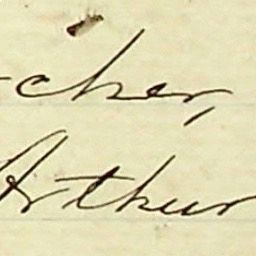 cher,
Arthur